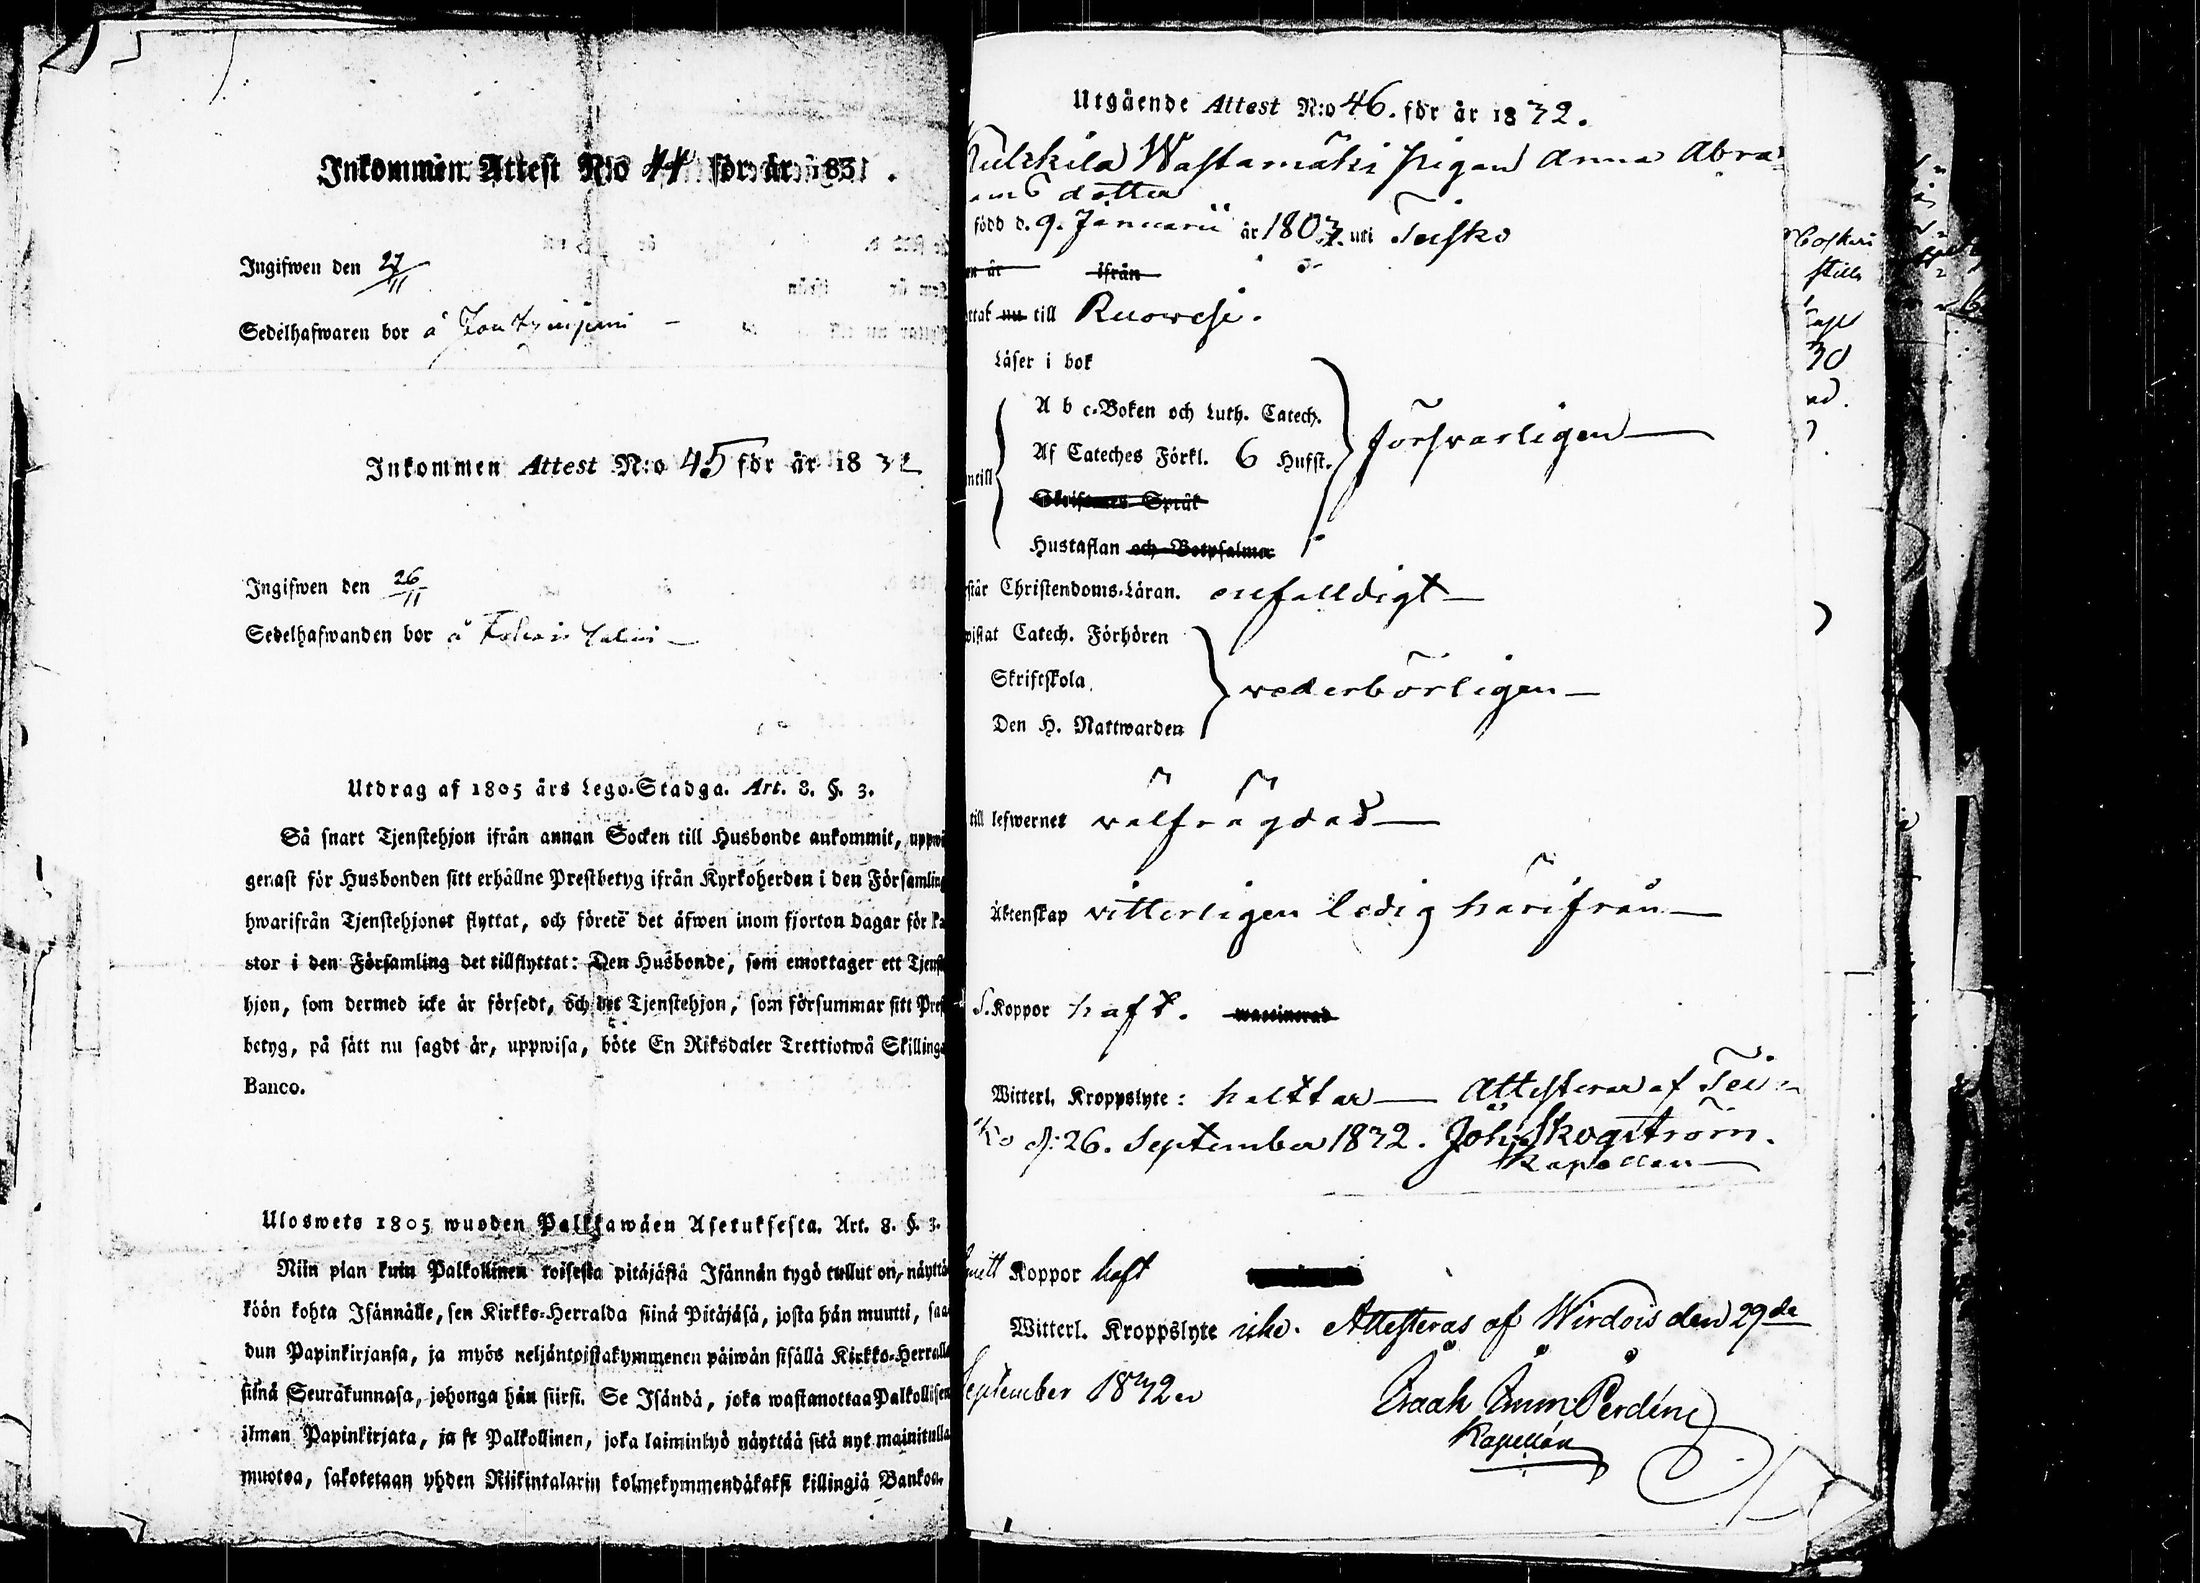 Inkommen Attest N:o 44 för år 1831.
Ingifwen den 27/11
Sedelhafwaren bor å
Inkommen Attest N:o 45 för år 1832
Ingifwen den 26/11
Sedelhafwanden bor å
Utdrag af 1805 års Lego-Stadga. Art. 8. §. 3.
Så snart Tjenstehjon ifrån annan Socken till Husbonde ankommit, uppwi
genast för Husbonden sitt erhållne Prestbetyg ifrån Kyrkoherden i den Församling
hwarifrån Tjenstehjonet flyttat, och förete det äfwen inom fjorton dagar för Pa
stor i den Församling det tillflyttat: Den Husbonde, som emottager ett Tjenst
hjon, som dermed icke är försedt, och det Tjenstehjon, som försummar sitt Prest
betyg, på sätt nu sagdt är, uppwisa, böte En Riksdaler Trettiotwå Skillingar
Banco.
Ulosweto 1805 wuoden Palkkawäen Asetuksesta. Art. 8. §. 3.
Niin pian kuin Palkollinen toisesta pitäjästä Isännän tygö tullut on, näyttä
köön kohta Isännälle, sen Kirkko-Herralda siinä Pitäjäsä, josta hän muutti, saa
dun Papinkirjansa, ja myös neljäntoistakymmenen päiwän sisällä Kirkko-Herralle
siinä Seurakunnasa, johonga hän siirsi. Se Isändä, joka wastanottaa Palkollisen
ilman Papinkirjata, ja se Palkollinen, joka laiminlyö näyttää sitä nyt mainitulla
muotoa, sakotetaan yhden Riikintalarin kolmekymmendäkaksi killingiä Bankoa.
Utgående Attest N:o 46. för år 1832.
Kulkkila Wastamäki pigan Anna Abra-
ams dotter
född d. 9. Januarii år 1803. uti Teisko
en år ifrån
ttat nu till Ruowesi.
Läser i bok
A b c-Boken och Luth. Catech.
Af Cateches Förkl. 6 Hufst.
försvarligen
ntill
Skriftenes Språk
Hustaflan och Botpsalmer
står Christendoms-Läran. enfalldigt
wistat Catech. Förhören
Skriftskola
wederbörligen
Den H. Nattwarden
till lefwernet välfrägdad
Äktenskap vitterligen ledig härifrån
S. Koppor haft. waccinerad
Witterl. Kroppslyte: halttar Attesteras af Teis-
ko d: 26. September 1832. Joh. Skogström.
Kapellan
Koppor haft
Witterl. Kroppslyte icke. Attesteras af Wirdois den 29de
September 1832
Isaak Perdén
Kapellan